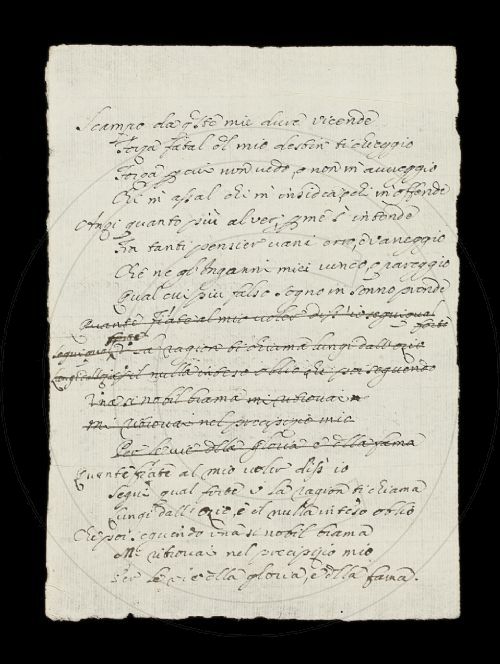 Scampo da q.ste mie dure vicende
Forza fatal del mio destin ti chieggio
Forza per cui non vedo, e non m'avveggio
Chi m'assal chi m'insidia, chi m'offende
Anzi quanto più al ver, per me s'intende
In tanti pensier vani erro, e vaneggio
Che ne gl'Inganni miei vinco, e pareggio
Qual cui più falso sogno in sonno prende
Quante fiate al mio voler diss'io segui qual
forte
segui qual forte la ragion ti chiama lungi dall'ozio
lungi dall' il nulla inteso oblio che poi seguendo
una sì nobil brama mi ritrovai n
mi ritrovai nel precipizio mio
Per le vie della gloria e della fama
Quante fiate al mio voler diss'io
Segui qual forte la ragion ti chiama
Lungi dall'ozio, e il nulla inteso oblio
Che poi seguendo una sì nobil brama
Mi ritrovai nel precipizio mio
Per le vie della gloria, e della fama.